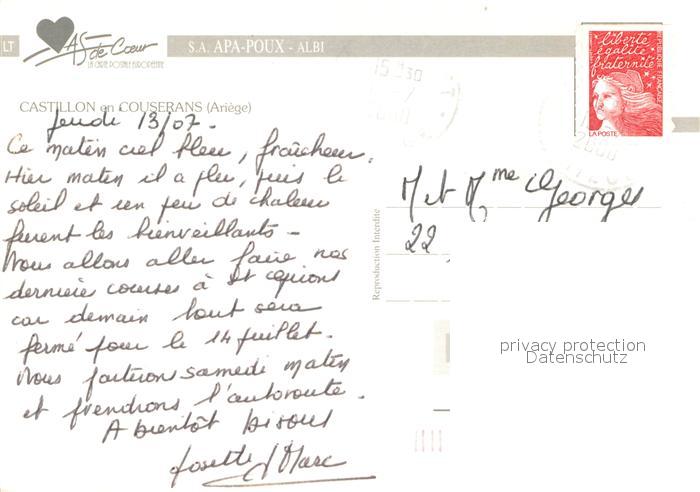 LT
AS de Cœur
LA CARTE POSTALE EUROPÉENNE
S.A. APA-POUX - ALBI
CASTILLON en COUSERANS (Ariège)
Jeudi 13/07.
Ce matin ciel bleu, fraîcheur.
Hier matin il a plu, puis le
soleil et un peu de chaleur
furent les bienveillants -
Nous allons aller faire nos
dernières courses à St
car demain tout sera
fermé pour le 14 juillet.
Nous partirons samedi matin
et prendrons l'autoroute.
A bientôt bisous
Josette & Marc
Reproduction Interdite
liberté
égalité
fraternité
RÉPUBLIQUE FRANÇAISE
LA POSTE
15H30
2000
2000
M et Mme Georges
22
privacy protection
Datenschutz